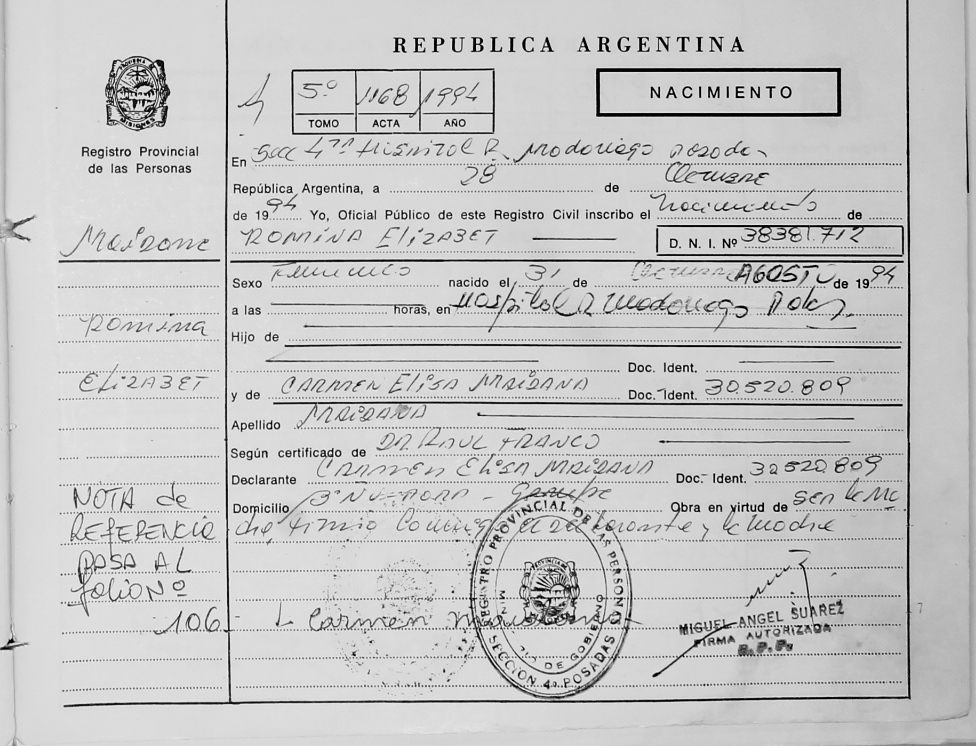 REPUBLICA ARGENTINA
5º 1168 1994
TOMO ACTA AÑO
NACIMIENTO
Registro Provincial
de las Personas
En Secc 4ta Hospital R. Madariaga Posadas
República Argentina, a 28 de Octubre
de 1994 Yo, Oficial Público de este Registro Civil inscribo el nacimiento de
ROMINA ELIZABET D. N. I. Nº 38381.712
Maidana
Romina
ELIZABET
NOTA de
REFERENCIA
PASA AL
folio Nº
106
Sexo Femenino nacido el 31 de AGOSTO de 1994
a las horas, en Hospital R Madariaga Pdas.
Hijo de
Doc. Ident.
y de CARMEN Elisa MAIDANA Doc. Ident. 30.520.809
Apellido MAIDANA
Según certificado de DR. RAUL FRANCO
Declarante CARMEN ELISA MAIDANA Doc. Ident. 30520809
Domicilio Obra en virtud de ser la ma
dre, firma conmigo el declarante y la madre
Carmen
REGISTRO PROVINCIAL DE LAS PERSONAS
MINISTERIO DE GOBIERNO
SECCIÓN 4ª POSADAS
MIGUEL ANGEL SUAREZ
FIRMA AUTORIZADA
R.P.P.